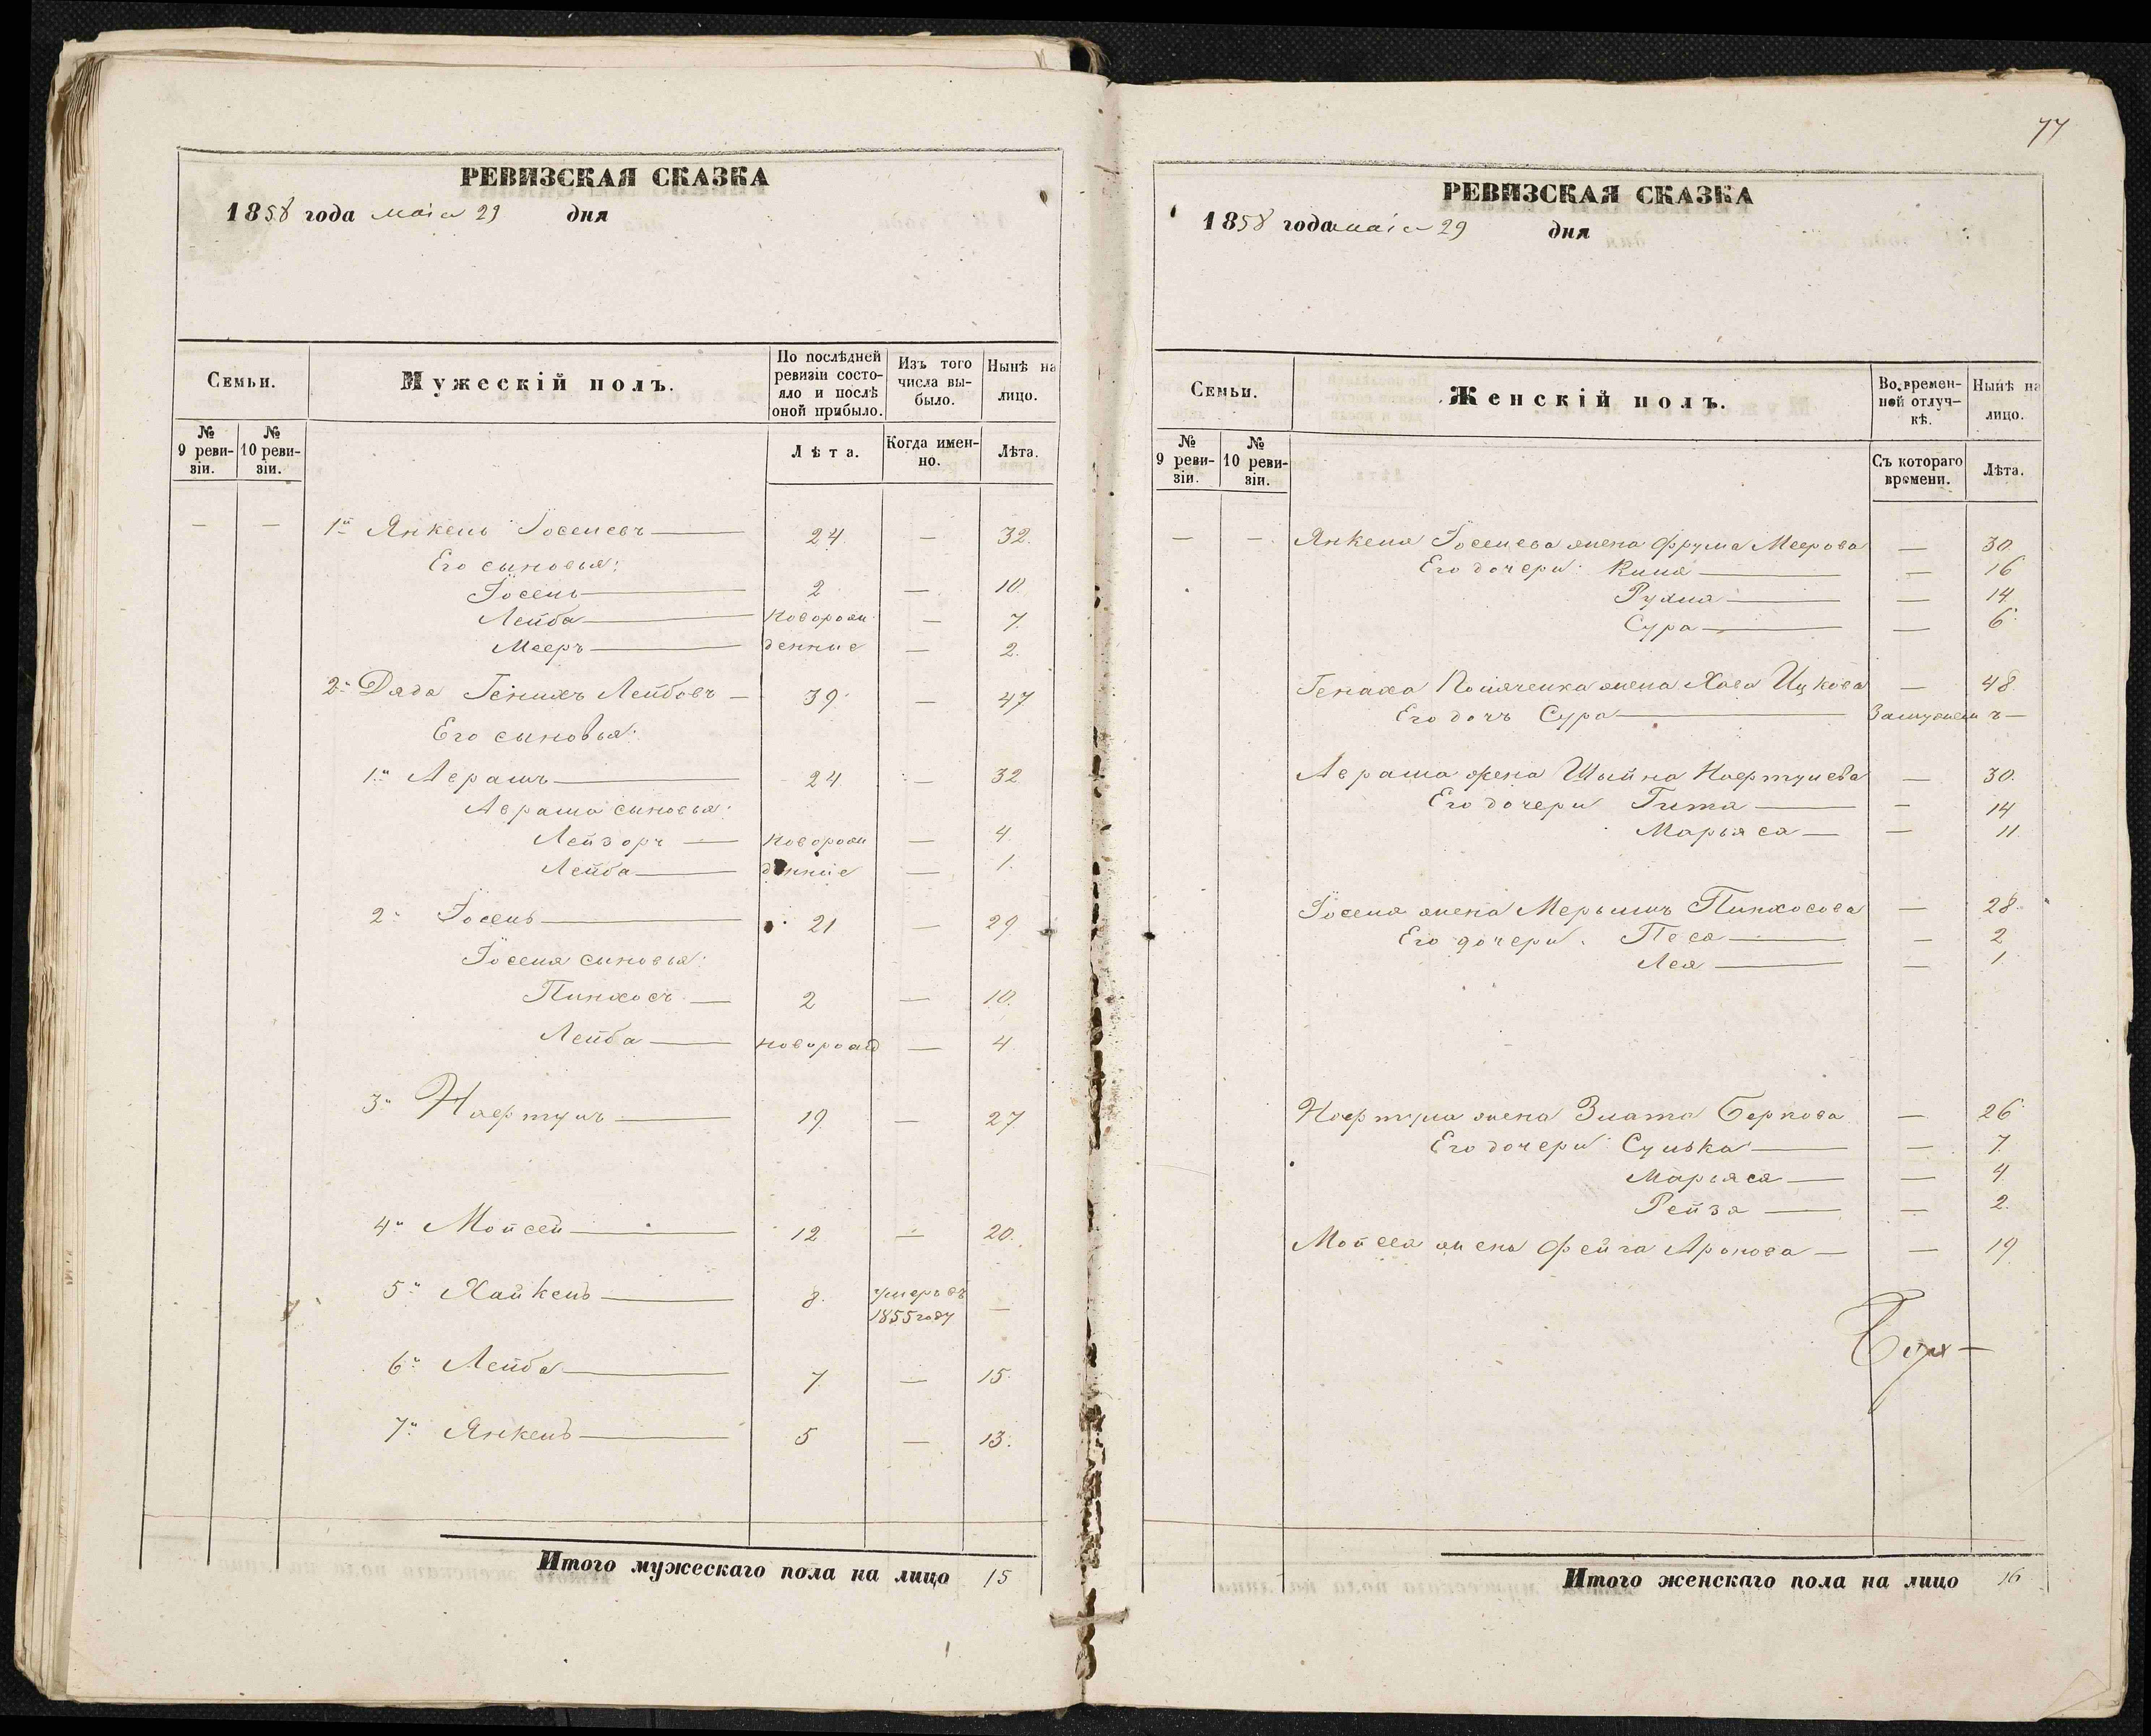 РЕВИЗСКАЯ СКАЗКА
1858 года маіа 29 дня
Семьи.
Мужескій полъ.
По послѣдней ревизіи состояло и послѣ оной прибыло.
Изъ того числа выбыло.
Нынѣ на лицо.
№ 9 ревизіи.
№ 10 ревизіи.
Лѣта.
Когда именно.
Лѣта.
— — 1й Янкель Іоселевъ — 24. — 32.
Его сыновья:
Іосель — 2 — 10.
Лейба — Новорож — 7.
Мееръ — денные — 2.
2й Дядя Генихъ Лейбовъ — 39. — 47
Его сыновья:
1й Аврамъ — 24 — 32
Аврама сыновья:
Лейзоръ — Новорож — 4.
Лейба — денные — 1.
2й Іосель — 21 — 29
Іоселя сыновья:
Пинхосъ — 2 — 10.
Лейба — новорожд — 4.
3й Нафтулъ — 19. — 27
4й Мойсей — 12 — 20.
5й Хайкель — 8. умеръ въ 1855 году —
6й Лейба — 7. — 15.
7й Янкель — 5 — 13.
Итого мужескаго пола на лицо 15
77
РЕВИЗСКАЯ СКАЗКА
1858 года маіа 29 дня
Семьи.
Женскій полъ.
Во временной отлучкѣ.
Нынѣ на лицо.
№ 9 ревизіи.
№ 10 ревизіи.
Съ котораго времени.
Лѣта.
— — Янкеля Іоселева жена Фрума Меерова — 30.
Его дочери: — 16
— 14.
Сура — — 6.
жена Хава Ицкова — 48
Его дочь Сура — Замужемъ —
Аврама жена Шейна Нафтулева — 30.
Его дочери Гита — — 14
Марьяса — — 11.
Іоселя жена Пинхосова — 28.
Его дочери: Песа — — 2
Лея — — 1.
Нафтула жена Злата Беркова — 26
Его дочери: Сулька — — 7.
Марьяса — — 4.
Рейза — — 2.
Мойсея жена Фейга Аронова — — 19.
Итого женскаго пола на лицо 16